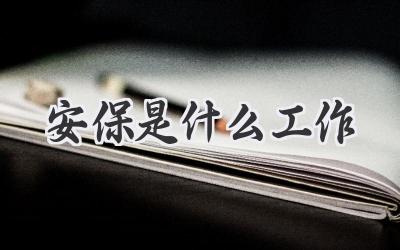 安保是什么工作